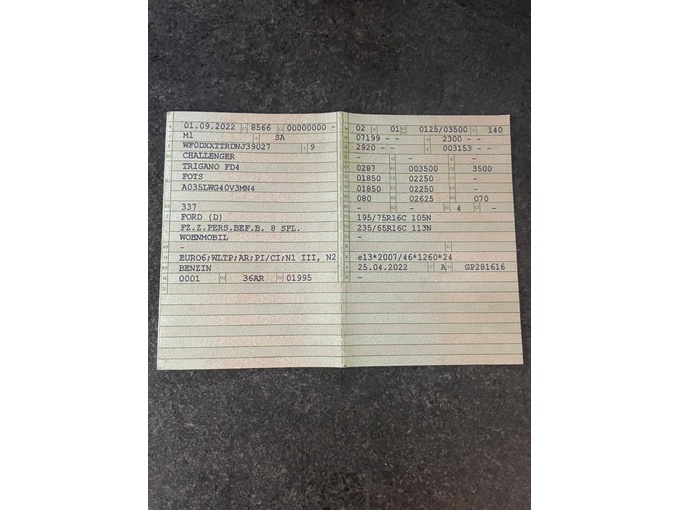 01.09.2022 8566 00000000 -
M1 SA
WF0DXXTTRDNJ39027 9
CHALLENGER
TRIGANO FD4
FOTS
A035LWG40V3MN4
337
FORD (D)
FZ.Z.PERS.BEF.B. 8 SPL.
WOHNMOBIL
-
EURO6;WLTP;AR;PI/CI;N1 III, N2
BENZIN
0001 36AR 01995
02 01 0125/03500 140
07199 - - 2300 - -
2920 - - 003153 - -
- - -
0287 003500 3500
01850 02250 -
01850 02250 -
080 02625 070
- - 4 -
195/75R16C 105N
235/65R16C 113N
-
-
e13*2007/46*1260*24
25.04.2022 A GP281616
-